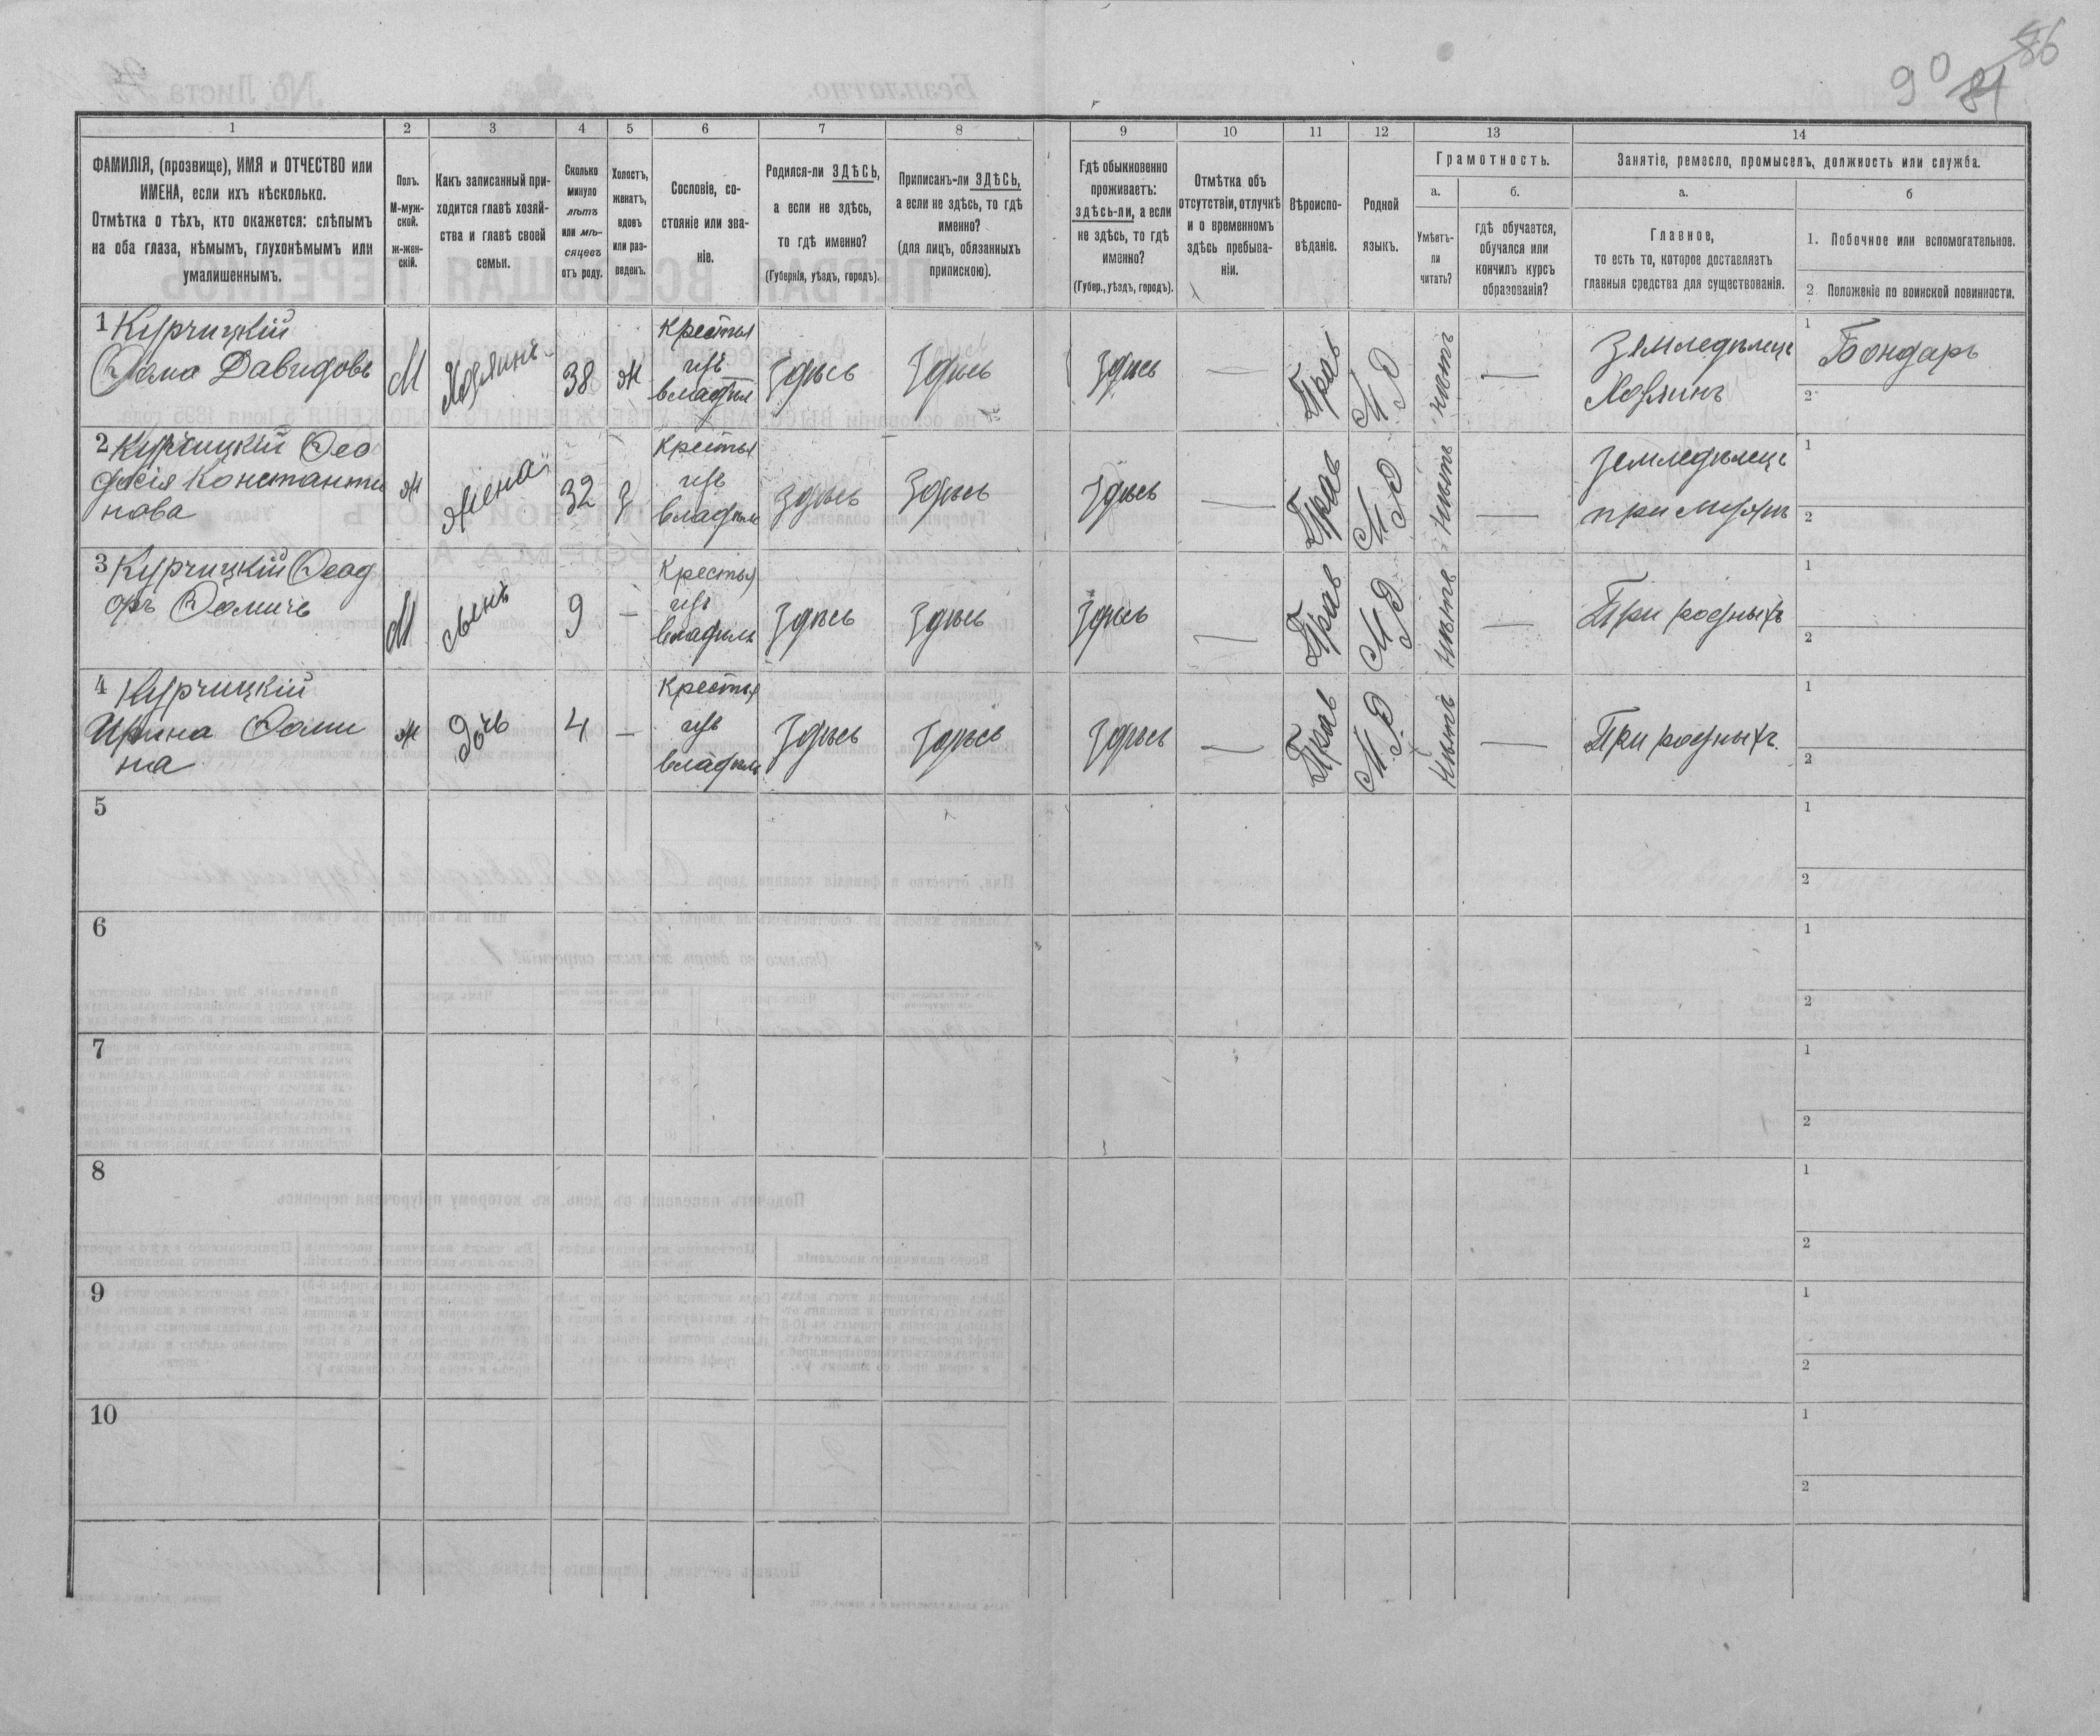 90 81 86
1
2
3
4
5
6
7
8
9
10
11
12
13
14
ФАМИЛІЯ, (прозвище), ИМЯ и ОТЧЕСТВО или
ИМЕНА, если ихъ нѣсколько.
Отмѣтка о тѣхъ, кто окажется: слѣпымъ
на оба глаза, нѣмымъ, глухонѣмымъ или
умалишеннымъ.
Полъ.
М-муж-
ской.
ж-жен-
скій.
Какъ записанный при-
ходится главѣ хозяй-
ства и главѣ своей
семьи.
Сколько
минуло
лѣтъ
или мѣ-
сяцевъ
отъ роду.
Холостъ,
женатъ,
вдовъ
или раз-
веденъ.
Сословіе, со-
стояніе или зва-
ніе.
Родился-ли ЗДѢСЬ,
а если не здѣсь,
то гдѣ именно?
(Губернія, уѣздъ, городъ).
Приписанъ-ли ЗДѢСЬ,
а если не здѣсь, то гдѣ
именно?
(для лицъ, обязанныхъ
припискою).
Гдѣ обыкновенно
проживаетъ:
здѣсь-ли, а если
не здѣсь, то гдѣ
именно?
(Губер., уѣздъ, городъ).
Отмѣтка объ
отсутствіи, отлучкѣ
и о временномъ
здѣсь пребыва-
ніи.
Вѣроиспо-
вѣданіе.
Родной
языкъ.
Грамотность.
а.
Умѣетъ-
ли
читать?
б.
гдѣ обучается,
обучался или
кончилъ курсъ
образованія?
Занятіе, ремесло, промыселъ, должность или служба.
а.
Главное,
то есть то, которое доставляетъ
главныя средства для существованія.
б
1. Побочное или вспомогательное.
2 Положеніе по воинской повинности.
1 Курчицкій
Ѳома Давидовъ
М
Хозяинъ
38
ж
Крестья
изъ
владѣл
Здѣсь
Здѣсь
Здѣсь
—
Прав
М Р
нѣтъ
—
Земледѣлецъ
Хозяинъ
1 Бондарь
2
2 Курчицкій Ѳео
досія Константи
нова
ж
жена
32
З
Крестья
изъ
владѣл
Здѣсь
Здѣсь
Здѣсь
—
Прав
М Р
Нѣтъ
—
Земледѣлецъ
при мужѣ
1
2
3 Курчицкій Ѳеод
оръ Ѳомичъ
М
сынъ
9
—
Крестья
изъ
владѣль
Здѣсь
Здѣсь
Здѣсь
—
Прав
М Р
Нѣтъ
—
При родныхъ
1
2
4 Курчицкій
Ирина Ѳоми
на
ж
Дочь
4
—
Крестья
изъ
владѣль
Здѣсь
Здѣсь
Здѣсь
—
Прав
М. Р.
Нѣтъ
—
При родныхъ
1
2
5
1
2
6
1
2
7
1
2
8
1
2
9
1
2
10
1
2